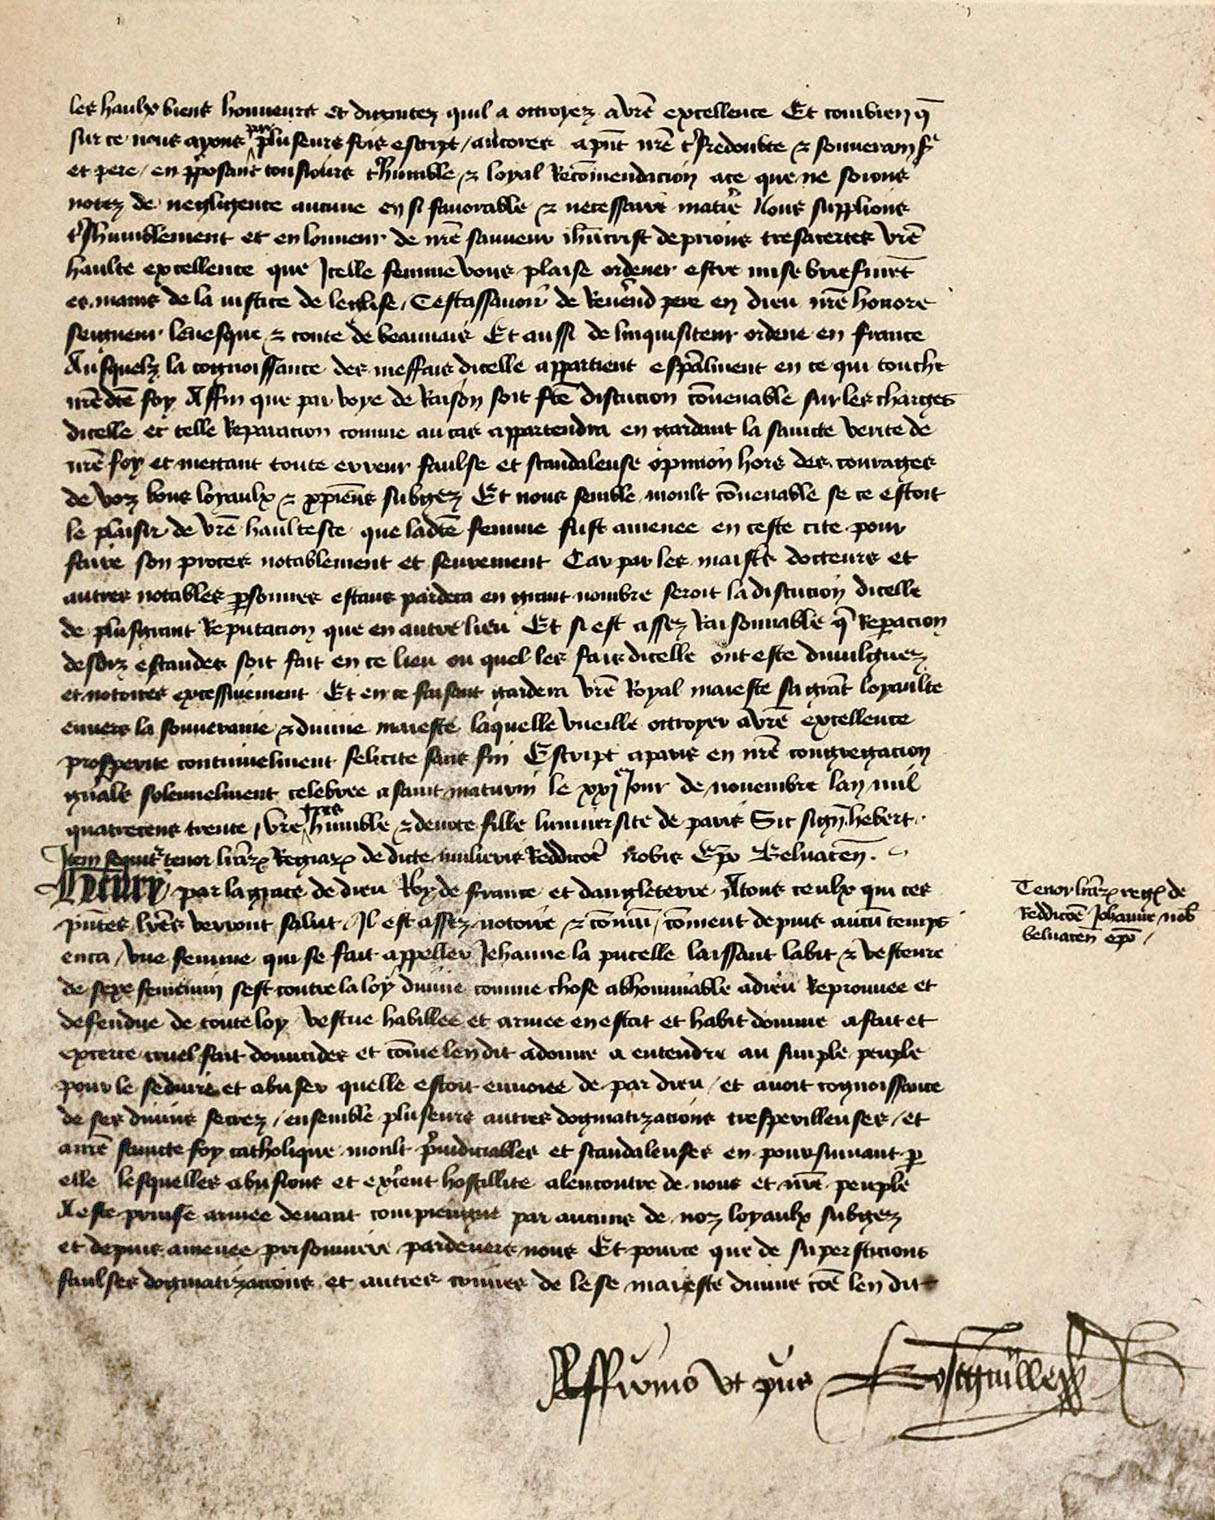 les haulx biens honneurs et dignitez quil a ottroyez a vrē excellence Et combien q̄
sur ce nous ayons par pluseurs fois escript / ancores a pn̄t nrē tsredoubte & souverain sr̄
et pere / en pposant tousiours ts humble & loyal Recōmendacion a ce que ne soions
notez de negligence aucune en si favorable & necessaire matiēr Nous supplions
ts humblement et en lonneur de nrē sauveur ihūcrist deprions tresacertes vrē
haulte excellence que Icelle femme vous plaise ordener estre mise briefmēt
es mains de la iustice de leglise / Cestassavoir de Reverēnd pere en dieu nrē honore
seigneur levesque & conte de beauvais Et aussi de linquisiteur ordene en france
Ausquelz la cognoissance des meffais dicelle appartient espālment en ce qui touche
nrē dc̄e foy Affin que par voye de Raison soit fc̄e discucion cōvenable sur les charges
dicelle et telle Reparacion comme au cas appartendra en gardant la saincte verite de
nrē foy et mettant toute erreur faulse et scandaleuse opinion hors des courages
de voz bons loyaulx & xp̄iens subgez Et nous semble moult cōvenable se ce estoit
le plaisir de vrē haultesse que ladc̄e femme fust amenee en ceste cite pour
faire son proces notablement et seurement Car par les maistrs docteurs et
autres notables psonnes estans pardeca en grant nombre seroit la discucion dicelle
de plus grant Reputacion que en autre lieu Et si est assez Raisonnable q̄ Repacion
desdiz escandes soit fait en ce lieu ou quel les fais dicelle ont este divulguez
et notoires excessivement Et en ce faisant gardera vrē Royal maieste sa grāt loyaulte
envers la souveraine & divine maieste laquelle vueille ottroyer a vrē excellence
prosperite continuelment felicite sans fin Escript a paris en nrē congregacion
gn̄ale solennelment celebree a saint maturin le xxie Jour de novembre lan mil
quatrecens trente / Vrē tres humble & devote fille luniversite de paris Sic sign̄ hebert.
Item sequitr tenor lr̄arx Regiarx de dicte mulieris Reddicōe nobis Ep̄o Belvaceñ.
Henry par la grace de dieu Roy de france et dangleterre A tous ceulx qui ces
Tenor lr̄arx regx de
pn̄tes lr̄es verront salut / Il est assez notoire & cōmū / cōment depuis aucū temps
Reddicōe Johanne nob̄
enca / vne femme qui se fait appeller Jehanne la pucelle laissant labit & vesteure
belvaceñ ep̄o /
de sexe feminin sest contre la loy divine comme chose abhominable a dieu Reprouvee et
defendue de toute loy vestue habillee et armee en estat et habit domme a fait et
exerce cruel fait domicides et cōme len dit a donne a entendre au simple peuple
pour le seduire et abuser quelle estoit envoiee de par dieu / et avoit cognoissance
de ses divins secrez / ensemble pluseurs autres dogmatizacions tresperilleuses / et
a nrē saincte foy catholique moult p̄iudiciables et scandaleuses en poursuivant p
elle lesquelles abusions et exc̄ent hostillite alencontre de nous et nrē peuple
A este prinse armee devant compiengne par aucuns de noz loyaulx subgez
et depuis amenee prisonniere pardevers nous Et pource que de supersticions
faulses dogmatizacions et autres crimes de lese maieste divine cōe len dit
Affirmo ut pr̄us Bosguille